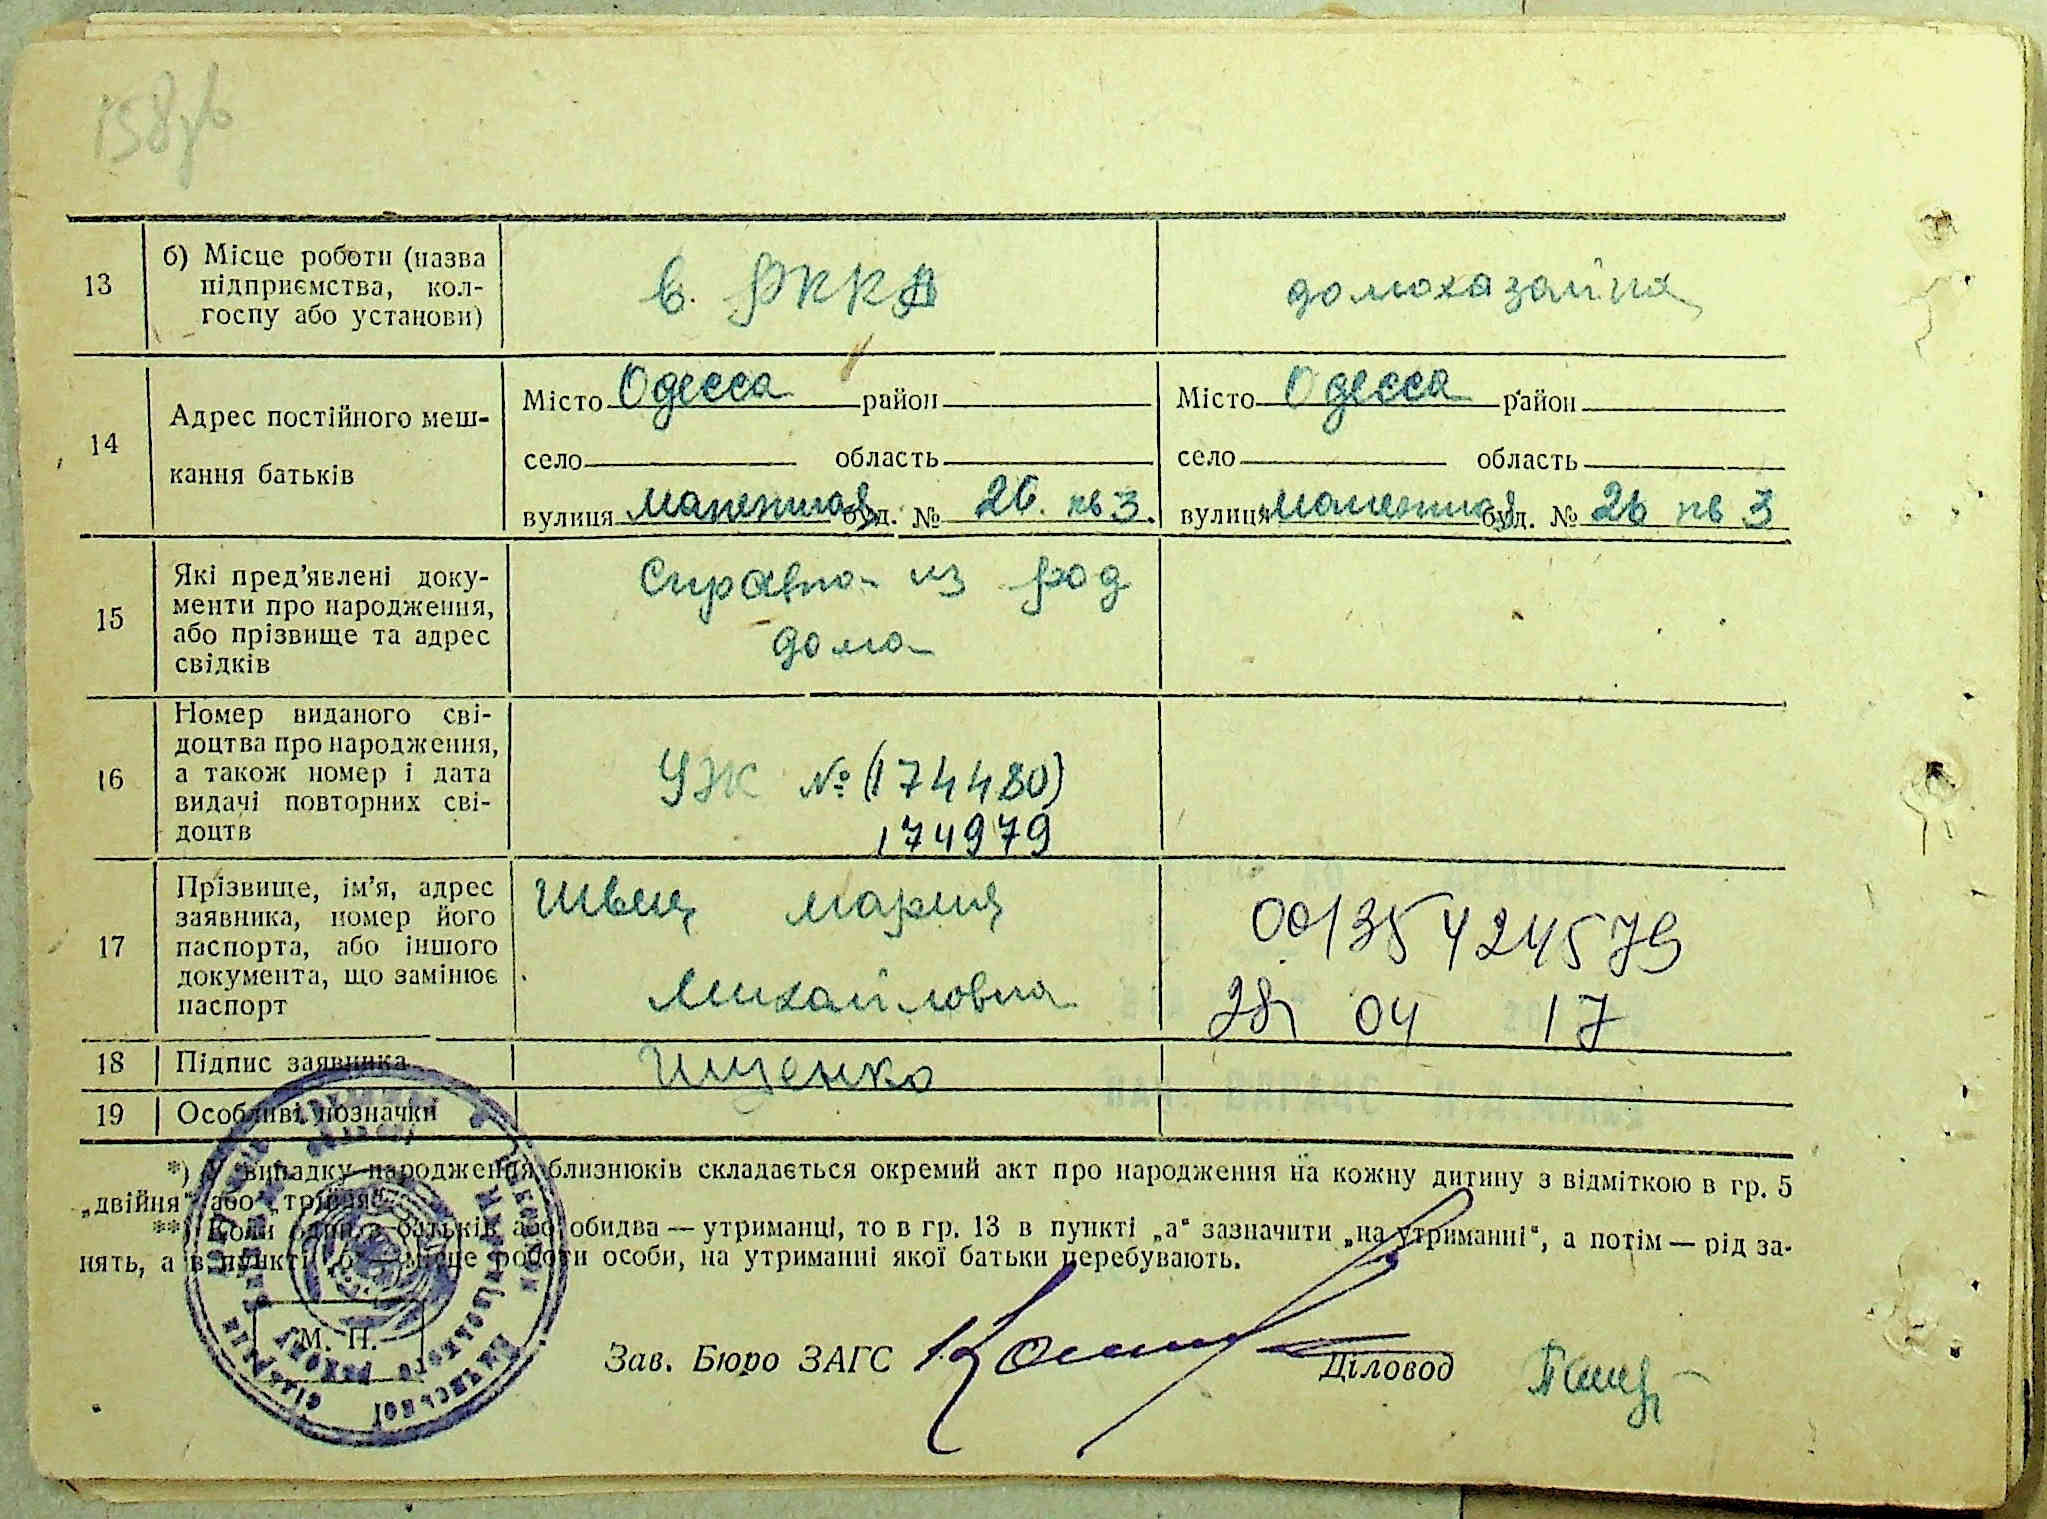 158 зв
13
б) Місце роботи (назва
підприємства, кол-
госпу або установи)
в. РККА
домохазайка
14
Адрес постійного меш-
кання батьків
Місто Одесса район
село область
вулиця буд. № 26. кв 3.
Місто Одесса район
село область
вулиця буд. № 26 кв 3
15
Які пред'явлені доку-
менти про народження,
або прізвище та адрес
свідків
Справка из род
дома
16
Номер виданого сві-
доцтва про народження,
а також номер і дата
видачі повторних сві-
доцтв
УЖ № (174480)
174979
17
Прізвище, ім'я, адрес
заявника, номер його
паспорта, або іншого
документа, що замінює
паспорт
Швец мария
Михайловна
00135424579
28 04 17
18
Підпис заявника
Ищенко
19
Особливі позначки
*) У випадку народження близнюків складається окремий акт про народження на кожну дитину з відміткою в гр. 5
„двійня" або „трійня".
**) Коли один з батьків або обидва — утриманці, то в гр. 13 в пункті „а" зазначити „на утриманні", а потім — рід за-
нять, а в пункті „б" — місце роботи особи, на утриманні якої батьки перебувають.
М. П.
Зав. Бюро ЗАГС
Діловод